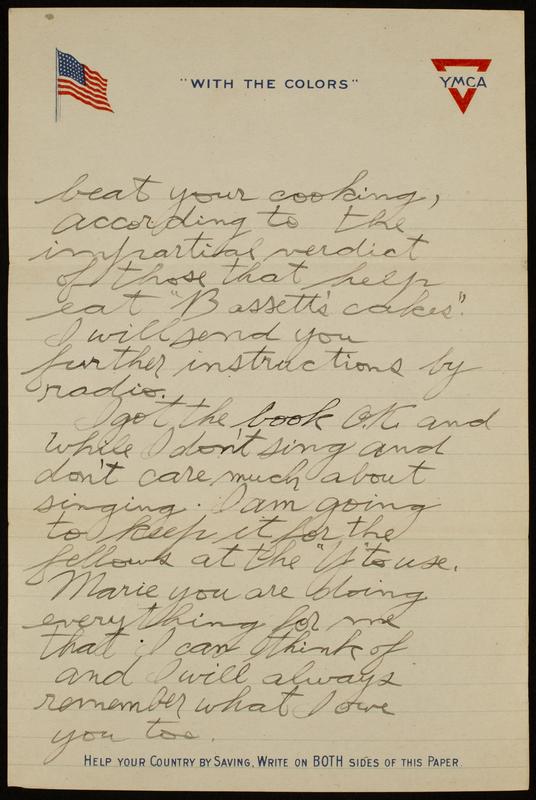 "WITH THE COLORS"
YMCA
beat your cooking,
according to the
impartial verdict
of those that help
eat "Bassett's cakes".
I will send you
further instructions by
radio.
I got the book OK and
while I don't sing and
don't care much about
singing. I am going
to keep it for the
fellows at the "Y" to use.
Marie you are doing
everything for me
that I can think of
and I will always
remember what I owe
you too.
HELP YOUR COUNTRY BY SAVING. WRITE ON BOTH SIDES OF THIS PAPER